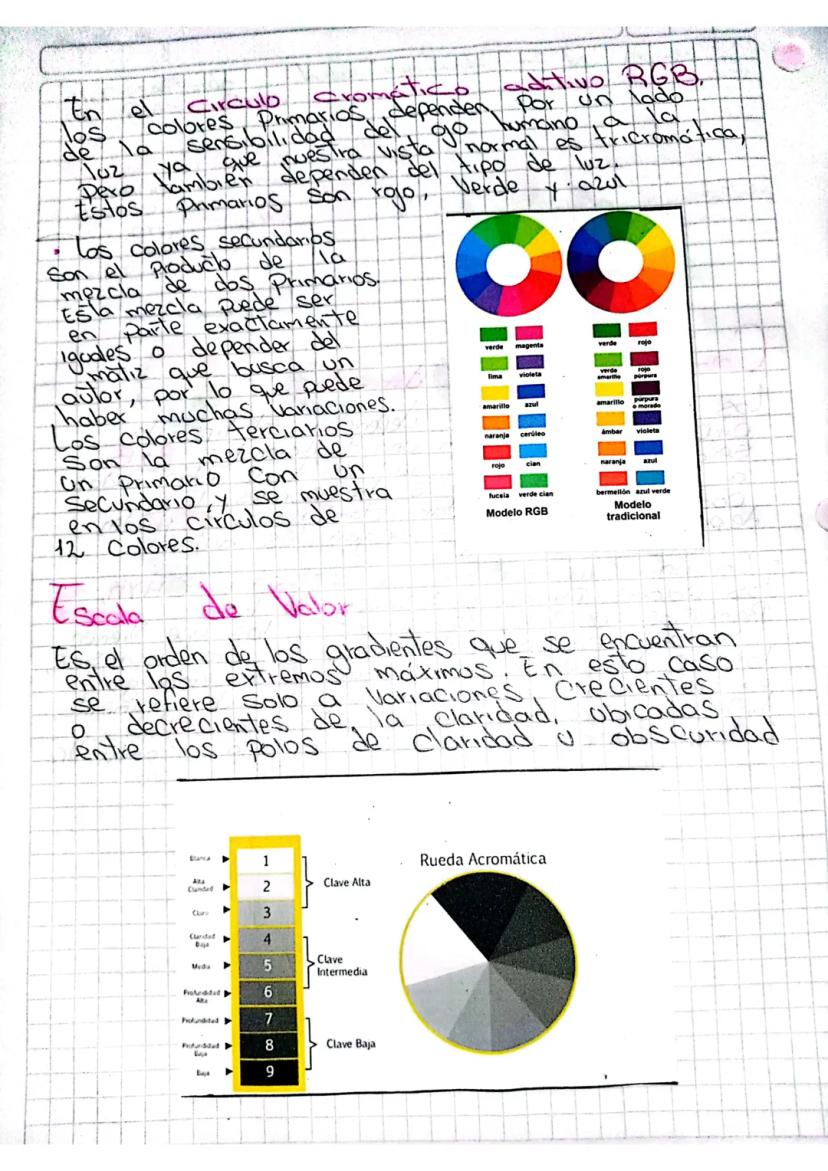 En el circulo cromático aditivo RGB,
los colores Primarios dependen por un lado
de la sensibilidad del ojo humano a la
luz ya que nuestra vista normal es tricromática,
Pero también dependen del tipo de luz.
Estos Primarios son rojo, Verde y azul
• Los colores secundarios
Son el Producto de la
mezcla de dos Primarios.
Esta mezcla puede ser
en parte exactamente
iguales o depender del
matiz que busca un
autor, por lo que puede
haber muchas variaciones.
Los colores terciarios
Son la mezcla de
un Primario con un
Secundario, y se muestra
en los círculos de
12 Colores.
verde magenta
lima violeta
amarillo azul
naranja cerúleo
rojo cian
fucsia verde cian
Modelo RGB
verde rojo
verde amarillo rojo púrpura
amarillo púrpura o morado
ámbar violeta
naranja azul
bermellón azul verde
Modelo
tradicional
Escala de Valor
Es el orden de los gradientes que se encuentran
entre los extremos máximos. En esto caso
se refiere solo a Variaciones Crecientes
o decrecientes de la claridad, ubicadas
entre los polos de claridad u obscuridad
Rueda Acromática
Blanca 1
Alta Claridad 2
Claro 3
Claridad Baja 4
Media 5
Profundidad Alta 6
Profundidad 7
Profundidad Baja 8
Baja 9
Clave Alta
Clave
Intermedia
Clave Baja